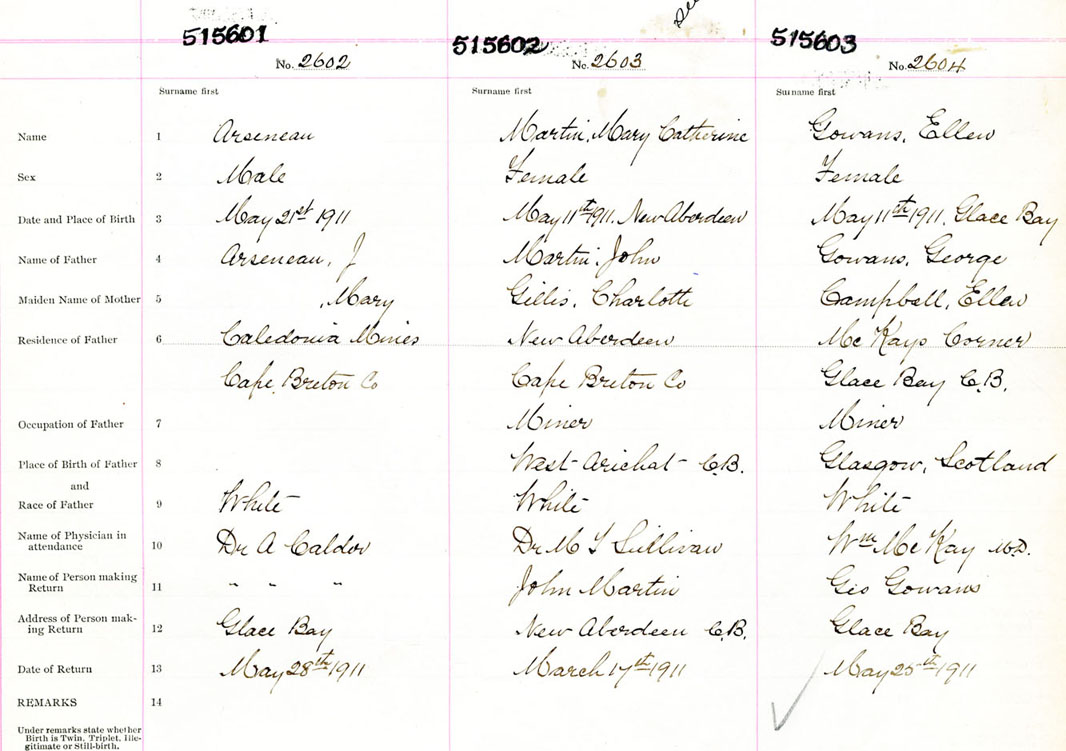 515601 515602 515603
No. 2602 No. 2603 No. 2604
Surname first Surname first Surname first
Name 1 Arseneau Martin, Mary Catherine Gowans, Ellen
Sex 2 Male Female Female
Date and Place of Birth 3 May 21st 1911 May 11th 1911. New Aberdeen May 11th 1911. Glace Bay
Name of Father 4 Arseneau, J Martin, John Gowans, George
Maiden Name of Mother 5 , Mary Gillis, Charlotte Campbell, Ellen
Residence of Father 6 Caledonia Mines New Aberdeen Mc Kays Corner
Cape Breton Co Cape Breton Co Glace Bay C.B.
Occupation of Father 7 Miner Miner
Place of Birth of Father 8 West Arichat C.B. Glasgow, Scotland
and
Race of Father 9 White White White
Name of Physician in
attendance 10 Dr A Caldor Dr M T Sullivan Wm Mc Kay M.D.
Name of Person making
Return 11 " " " John Martin Geo Gowans
Address of Person mak-
ing Return 12 Glace Bay New Aberdeen C.B. Glace Bay
Date of Return 13 May 28th 1911 March 17th 1911 May 25th 1911
REMARKS 14
Under remarks state whether
Birth is Twin, Triplet, Ille-
gitimate or Still-birth.